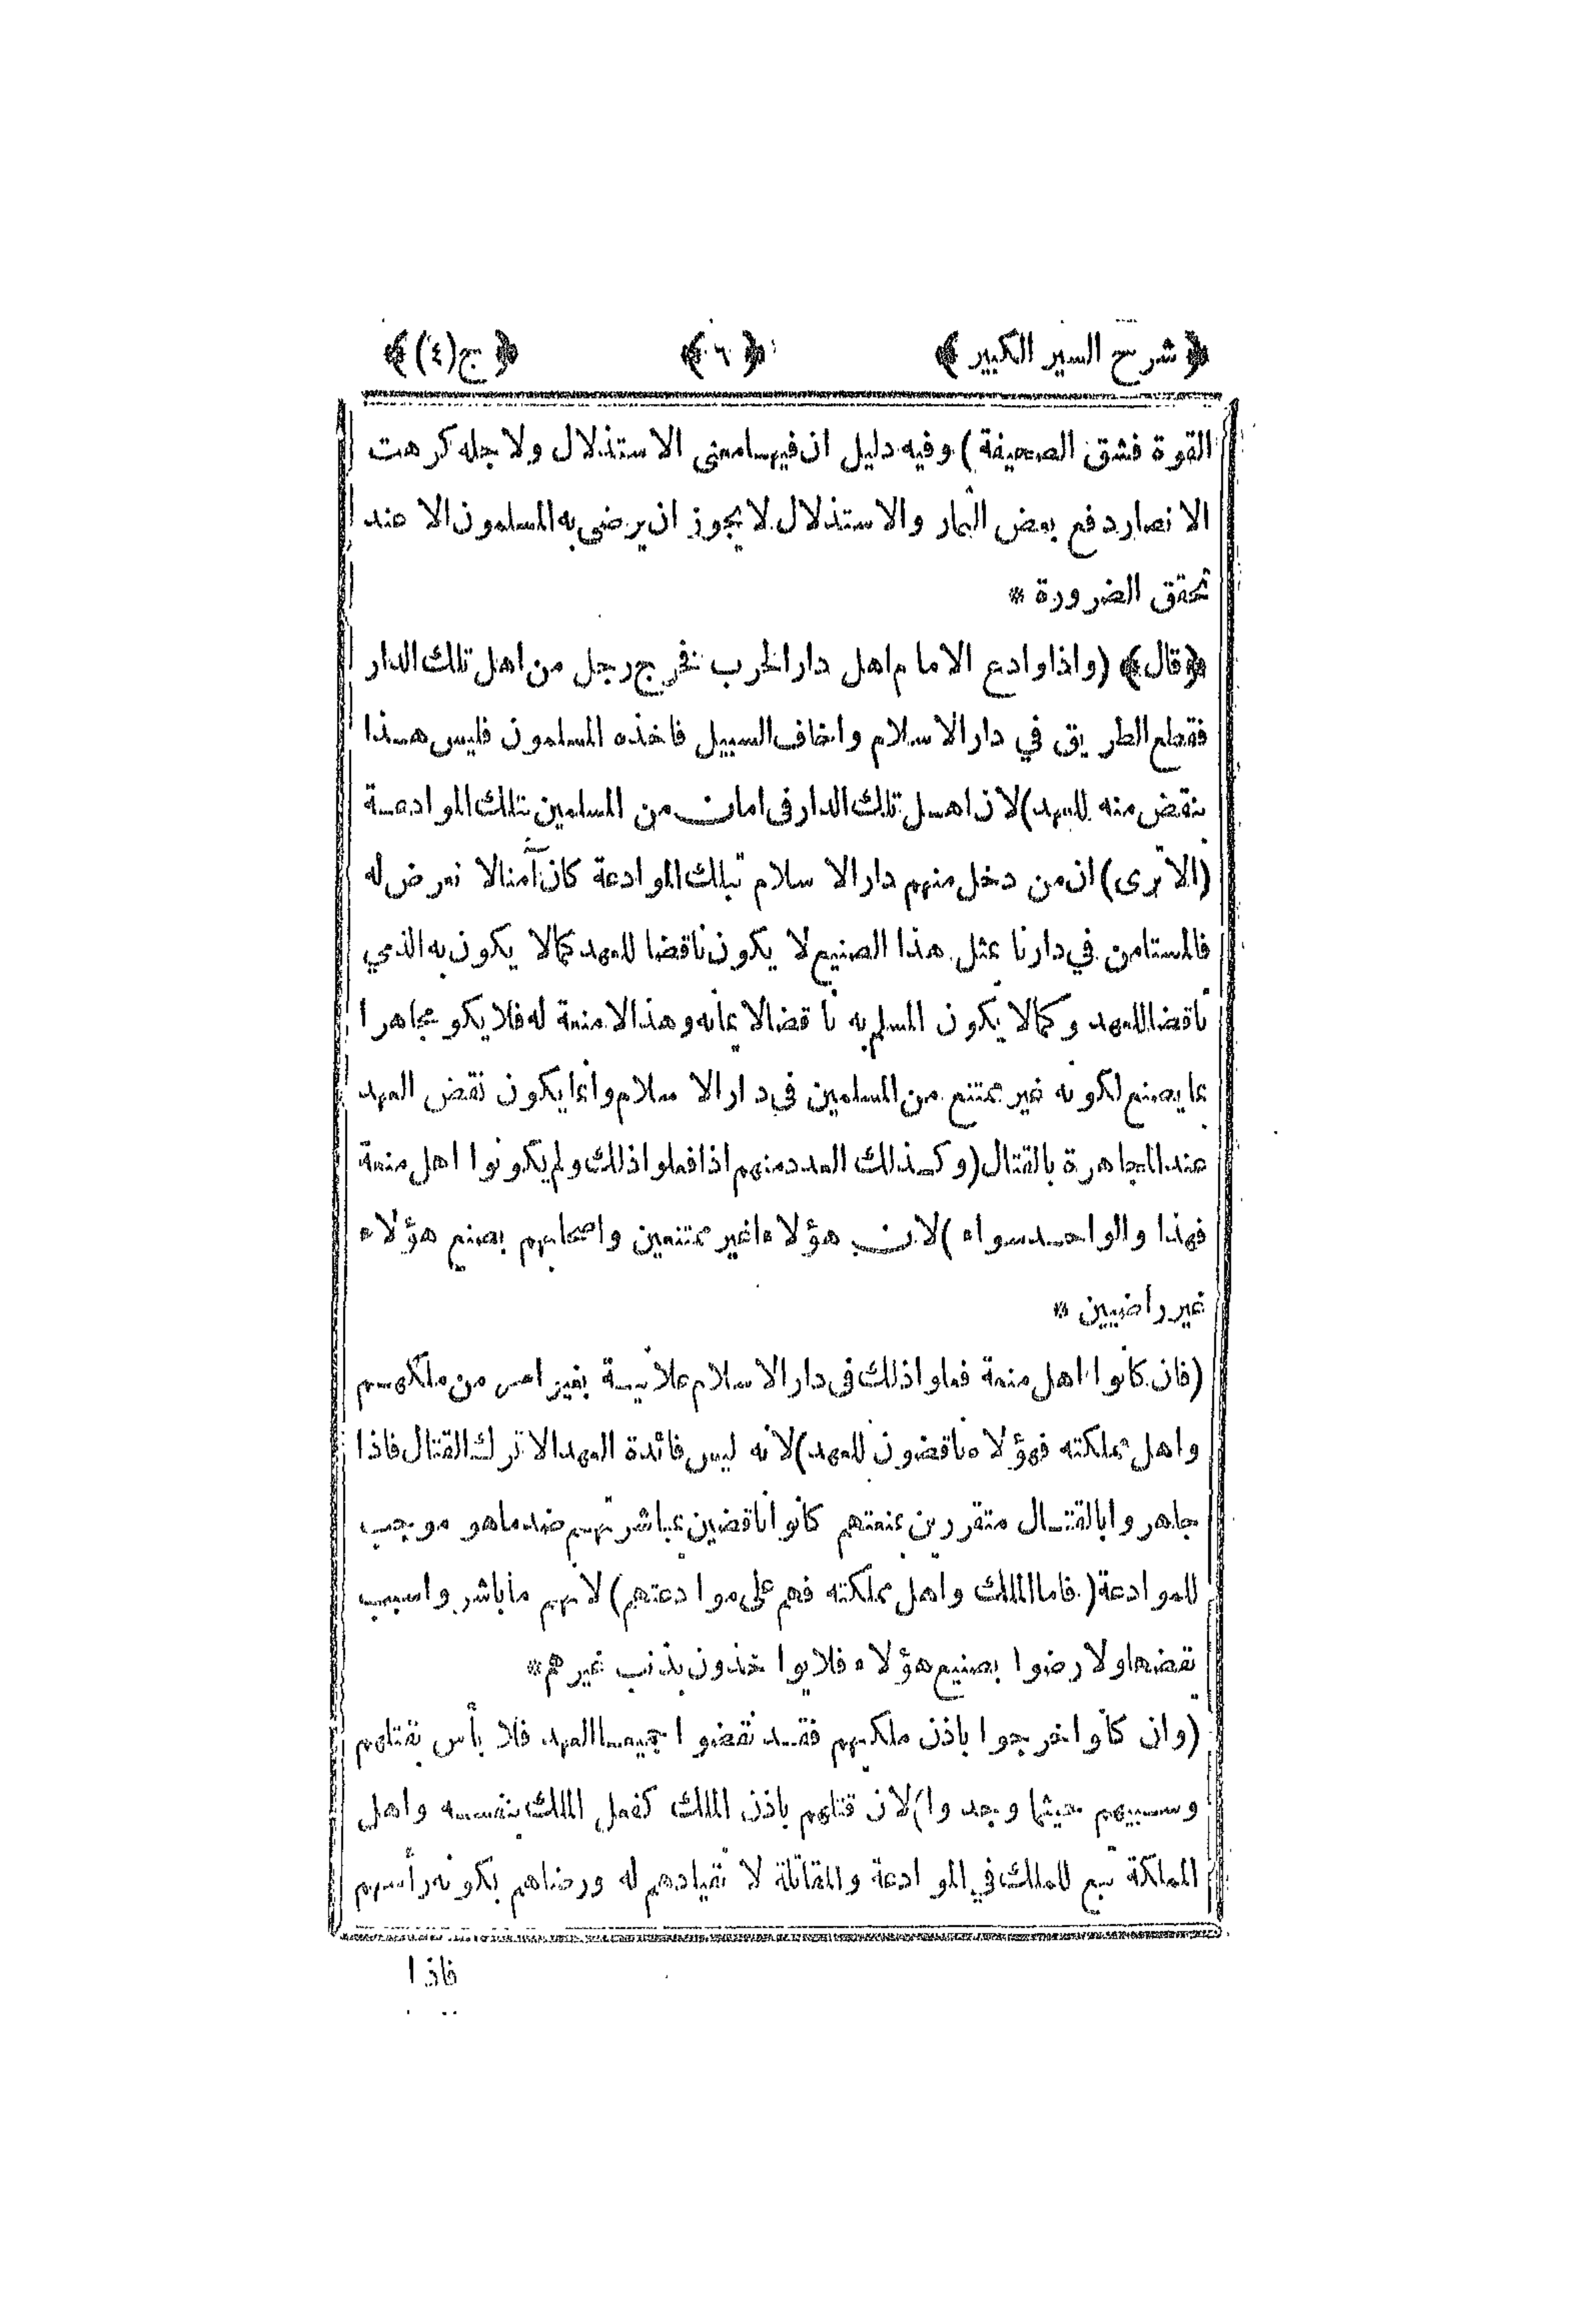 ﴿ شرح السير الكبير ﴾ ﴿ ٦ ﴾ ﴿ ج(٤) ﴾
القوة فشق الصحيفة) وفيه دليل ان فيها معنى الاستذلال ولاجله كرهت
الانصار دفع بعض الثمار والاستذلال لا يجوز ان يرضى به المسلمون الا عند
تحقق الضرورة *
﴿قال﴾ (واذا وادع الامام اهل دار الحرب نخرج رجل من اهل تلك الدار
فقطع الطريق في دار الاسلام واخاف السبيل فاخذه المسلمون فليس هذا
بنقض منه للعهد) لان اهل تلك الدار فى امان من المسلمين بتلك الموادعة
(الا ترى) ان من دخل منهم دار الاسلام بتلك الموادعة كان آمنا لا نعرض له
فالمستامن في دارنا بمثل هذا الصنيع لا يكون ناقضا للعهد كما لا يكون به الذمي
ناقضا للعهد وكما لا يكون المسلم به ناقضا لايمانه وهذا لا منعة له فلا يكو مجاهرا
بما يصنع لكونه غير ممتنع من المسلمين فى دار الاسلام وانما يكون نقض العهد
عند المجاهرة بالقتال (وكذلك العدد منهم اذا فعلوا ذلك ولم يكونوا اهل منعة
فهذا والواحد سواء) لان هؤلاء غير ممتنعين واصحابهم بصنع هؤلاء
غير راضيين *
(فان كانوا اهل منعة فعلوا ذلك فى دار الاسلام علانية بغير امر من ملكهم
واهل مملكته فهؤلاء ناقضون للعهد) لانه ليس فائدة العهد الا ترك القتال فاذا
جاهروا بالقتال متقررين بمنعتهم كانوا ناقضين بمباشرتهم ضد ما هو موجب
للموادعة (فاما الملك واهل مملكته فهم على موادعتهم) لانهم ما باشروا سبب
نقضها ولا رضوا بصنيع هؤلاء فلا يوا خذون بذنب غيرهم*
(وان كانوا خرجوا باذن ملكهم فقد نقضوا جميعا العهد فلا بأس بقتلهم
وسبيهم حيثما وجدوا) لان قتلهم باذن الملك كفعل الملك بنفسه واهل
المملكة تبع للملك في الموادعة والمقاتلة لانقيادهم له ورضاهم بكونه رأسهم
فاذا